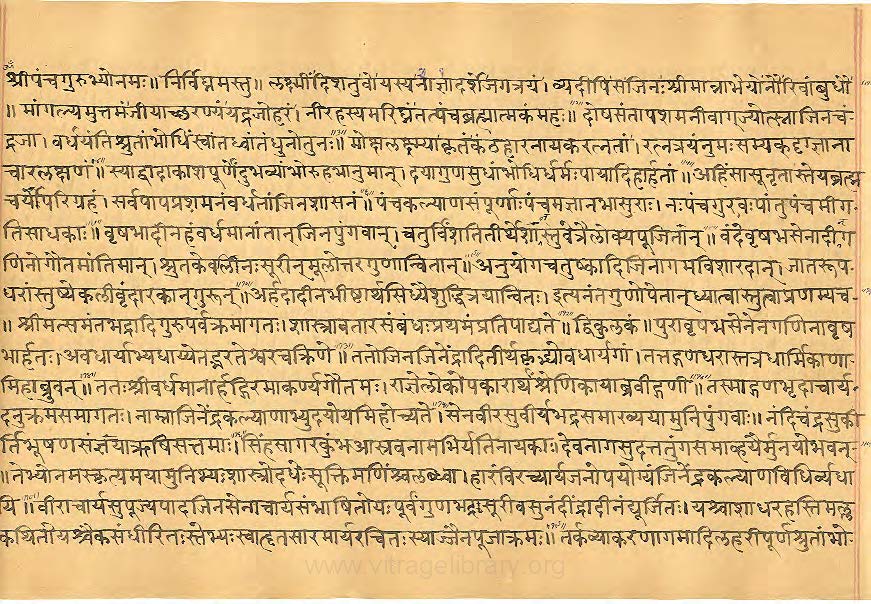 श्रीपंचगुरुभ्योनमः॥ निर्विघ्नमस्तु॥ लक्ष्मींदिशतुवोयस्यज्ञानादर्शेजगत्रयं। व्यदीपिसजिनःश्रीमान्नाभेयोनौरिवांबुधौ
॥ मांगल्यमुत्तमंजीयाच्छरण्यंयद्रजोहरं। नीरहस्यमरिघ्नंतत्पंचब्रह्मात्मकंमहः॥ दोषसंतापशमनीवाग्ज्योत्स्नाजिनचं-
द्रजा। वर्धयंतिश्रुतांभोधिंस्वांतध्वांतंधुनोतुनः॥ मोक्षलक्ष्म्याकृतंकंठहारनायकरत्नतां। रत्नत्रयंनुमःसम्यकदृग्ज्ञाना
चारलक्षणं॥ स्याद्वादाकाशपूर्णेंदुभव्यांभोरुहभानुमान्। दयागुणसुधांभोधिर्धर्मःपायादिहार्हतां॥ अहिंसासूनृतास्तेयब्रह्म
चर्यापरिग्रहं। सर्वपापप्रशमनंवर्धतांजिनशासनं॥ पंचकल्याणसंपूर्णाःपंचमज्ञानभासुराः। नःपंचगुरवःपांतुपंचमीग-
तिसाधकाः॥ वृषभादीनहंवर्धमानांतान्जिनपुंगवान्। चतुर्विंशतितीर्थेशांस्तुवेत्रैलोक्यपूजितान्॥ वंदेवृषभसेनादीग
णिनोगौतमांतिमान्। श्रुतकेवलीनःसूरीन्मूलोत्तरगुणान्वितान्॥ अनुयोगचतुष्कादिजिनागमविशारदान्। जातरूप-
धरांस्तुष्येकलीवृंदारकान्गुरून्॥ अर्हदादीनभीष्टार्थसिध्यैशुद्धित्रयान्वितः। इत्यनंतगुणोपेतान्ध्यात्वास्तुत्वाप्रणम्यच-
॥ श्रीमत्समंतभद्रादिगुरुपर्वक्रमागतः। शास्त्रावतारसंबंधःप्रथमंप्रतिपाद्यते॥ हिकुलकं॥ पुरावृषभसेनेनगणिनावृष
भार्हतः। अवधार्याभ्यधाय्येतद्भरतेश्वरचक्रिणे॥ ततोजिनजिनेंद्रादितीर्थकृद्भ्योवधार्यगां। तत्तद्गणधरास्तत्रधार्मिकाणा-
मिहाब्रुवन्॥ ततःश्रीवर्धमानार्हद्गिरमाकर्ण्यगौतमः। राज्ञेलोकोपकारार्थंश्रेणिकायाब्रवीद्गणी॥ तस्माद्गणभृदाचार्य-
दनुक्रमसमागतः। नाम्नाजिनेंद्रकल्याणाभ्युदयोयमिहोच्यते॥ सेनवीरसुवीर्यभद्रसमाख्ययामुनिपुंगवाः॥ नंदिचंद्रसुकी
र्तिभूषणसंज्ञयाऋषिसत्तमाः। सिंहसागरकुंभआस्त्रवनामभिर्यतिनायकाः। देवनागसुदत्ततुंगसमाव्हयैर्मुनयोभवन्-
॥ तेभ्योनमस्कृत्यमयामुनिभ्यःशास्त्रोदधेःसूक्तिमणिंश्चलब्ध्वा। हारंविरच्यार्यजनोपयोग्यंजिनेंद्रकल्याणविधिर्व्यधा
यि॥ वीराचार्यसुपूज्यपादजिनसेनाचार्यसंभाषितोयःपूर्वंगुणभद्रसूरीवसुनंदींद्रादीनंद्यूर्जितः। यश्चाशाधरहस्तिमल्ल
कथितीयश्चैकसंधीरितःस्तेभ्यःस्वाहृतसारमार्यरचितःस्याज्जैनपूजाक्रमः॥ तर्कव्याकरणागमादिलहरीपूर्णश्रुतांभो-
www.vitragelibrary.org